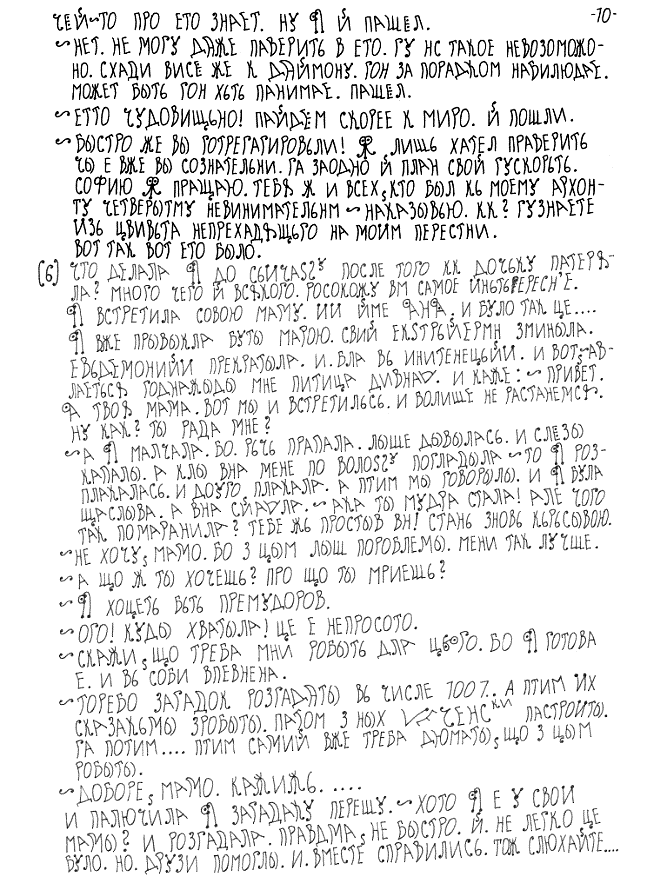 -10-
ЧЕЙ~ТО ПРО ЕТО ЗНАЕТ. НУ Я Й ПАШЕЛ.
~НЕТ. НЕ МОГУ ДАЖЕ ПАВЕРИТЬ В ЕТО. ГУ НС ТАКОЕ НЕВОЗОМОЖО-
НО. СХАДИ ВИСЕ ЖЕ К ДАЙМОНУ. ГОН ЗА ПОРАДКОМ НАБИЛЮДАЕ.
МОЖЕТ БЫТЬ ГОН ХЬТЬ ПАНИМАЕ. ПАШЕЛ.
~ЕТТО ЧУДОВИЩЬНО! ПАЙДЕМ СКОРЕЕ К МИРО. Й ПОШЛИ.
~БЫСТРО ЖЕ ВЫ ГОТРЕГАГИРОВЫЛИ! Я, ЛИШЬ ХАТЕЛ ПРАВЕРИТЬ
ЧЫ Е ВЖЕ ВЫ СОЗНАТЕЛЬНИ. ГА ЗАОДНО Й ПЛАН СВОЙ ГУСКОРЬТЬ.
СОФИЮ Я ПРАЩАЮ. ТЕБЯ Ж И ВСЕХ, КТО БЫЛ КЬ МОЕМУ АРХОН-
ТУ ЧЕТВЕРЫТМУ НЕВИНИМАТЕЛЬНМ ~ НАКАЗЫВЬЮ. КК? ГУЗНАЕТЕ
ИЗЬ ЦВИВЬТА НЕПРЕХАДЯЩЬГО НА МОИМ ПЕРЕСТНИ.
ВОТ ТАК ВОТ ЕТО БЫЛО.
(6) ЧТО ДЕЛАЛА Я ДО СЬИЧАSZУ ПОСЛЕ ТОГО КК ДОЧЬКУ ПАТЕРЯ-
ЛА? МНОГО ЧЕГО Й ВСЯКОГО. РОСОКОЖУ ВМ САМОЕ ИНЬТЬЕРЕСН'Е.
Я ВСТРЕТИЛА СОВОЮ МАМУ. ИИ ЙМЕ АНЯ. И БУЛО ТАК ЦЕ....
Я ВЖЕ ПРЫВЫКЛА БУТЫ МАРОЮ. СВИЙ ЕКSТРЬЙЕРМН ЗМИНЫЛА.
ЕВЬДЕМОНИЙИ ПРЕКРАТЫЛА. И. ВЛА ВЬ ИНИТЕНЕЦЬИЙИ. И ВОТ~АВ-
ЛАЕТЬСЯ ГОДНАЖЫДЫ МНЕ ПИТИЦА ДИВНАЯ. И КАЖЕ: ~ ПРИВЕТ.
А ТВОЯ МАМА. ВОТ МЫ И ВСТРЕТИЛЬСЬ. И БОЛИШЕ НЕ РАСТАНЕМСЯ.
НУ КАК? ТЫ РАДА МНЕ?
~А Я МАЛЧАЛА. БО. РЬЧЬ ПРАПАЛА. ЛЫШЕ ДЫВЫЛАСЬ. И СЛЕЗЫ
КАПАЛЫ. А КЛЫ ВНА МЕНЕ ПО ВОЛОSZУ ПОГЛАДЫЛА ~ ТО Я РОЗ-
ПЛАКАЛАСЬ. И ДОУГО ПЛАКАЛА. А ПТИМ МЫ ГОВОРЫЛЫ. И Я БУЛА
ЩАСЛЫВА. А ВНА СЙАЯЛА. ~ АКА ТЫ МУДРА СТАЛА! АЛЕ ЧОГО
ТАК ПОМАРАНИЛА? ТЕБЕ ЖЬ ПРОСТЫВ ВН! СТАНЬ ЗНОВЬ КЬРЬСЫВОЮ.
~НЕ ХОЧУ, МАМО. БО З ЦЫМ ЛЫШ ПОРОБЛЕМЫ. МЕНИ ТАК ЛУЧШЕ.
~А ЩО Ж ТЫ ХОЧЕШЬ? ПРО ЩО ТЫ МРИЕШЬ?
~Я ХОЦЕТЬ БЫТЬ ПРЕМУДОРОВ.
~ОГО! КУДЫ ХВАТЫЛА! ЦЕ Е НЕПРОСОТО.
~СКАЖИ, ЩО ТРЕБА МНИ РОБЫТЬ ДЛА ЦЬОГО. БО Я ГОТОВА
Е. И ВЬ СОБИ ВПЕВНЕНА.
~ТОРЕБО ЗАГАДОК РОЗГАДАТЫ ВЬ ЧИСЛЕ 1007.. А ПТИМ ИХ
СКАЗАКЬМЫ ЗРОБЫТЫ. ПАТОМ З НЫХ ЧЕНСКИ ПАСТРОИТЫ.
ГА ПОТИМ.... ПТИМ САМИЙ ВЖЕ ТРЕБА ДЮМАТЫ, ЩО З ЦЫМ
РОБЫТЫ.
~ДОБОРЕ, МАМО. КАЖИЖЬ. ....
И ПАЛЮЧИЛА Я ЗАГАДАКУ ПЕРЕШУ. ~ ХОТО Я Е У СВОИ
МАМЫ? И РОЗГАДАЛА. ПРАВДМА, НЕ БЫСТРО. Й. НЕ ЛЕГКО ЦЕ
БУЛО. НО. ДРУЗИ ПОМОГЛЫ. И. ВМЕСТЕ СПРАВИЛИСЬ. ТОЖ СЛЮХАЙТЕ....